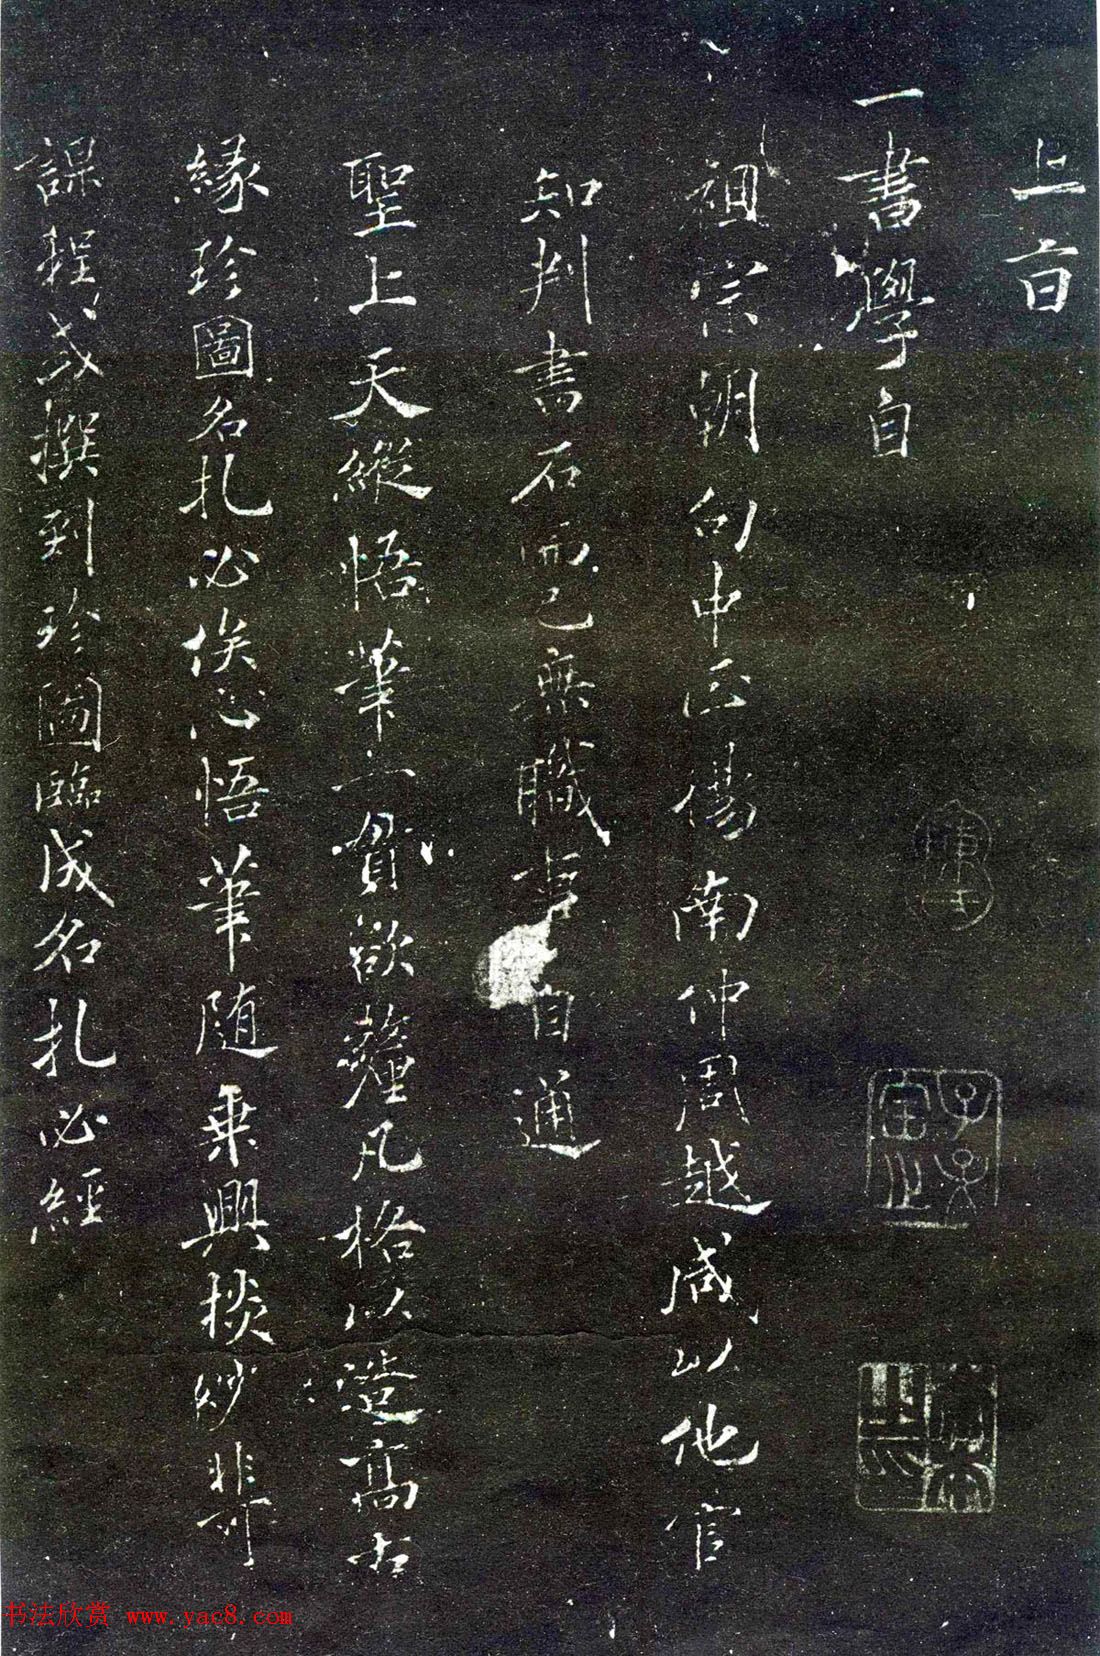 上旨
一書學自
祖宗朝句中正楊南仲周越咸以他官
知判書石而已無職事自通
聖上天縱悟筆一貫欲釐凡格以造高古
緣珍圖名札必俟心悟筆隨乘興掞妙非可
課程或撰到珍圖臨成名札必經
书法欣赏 www.yac8.com